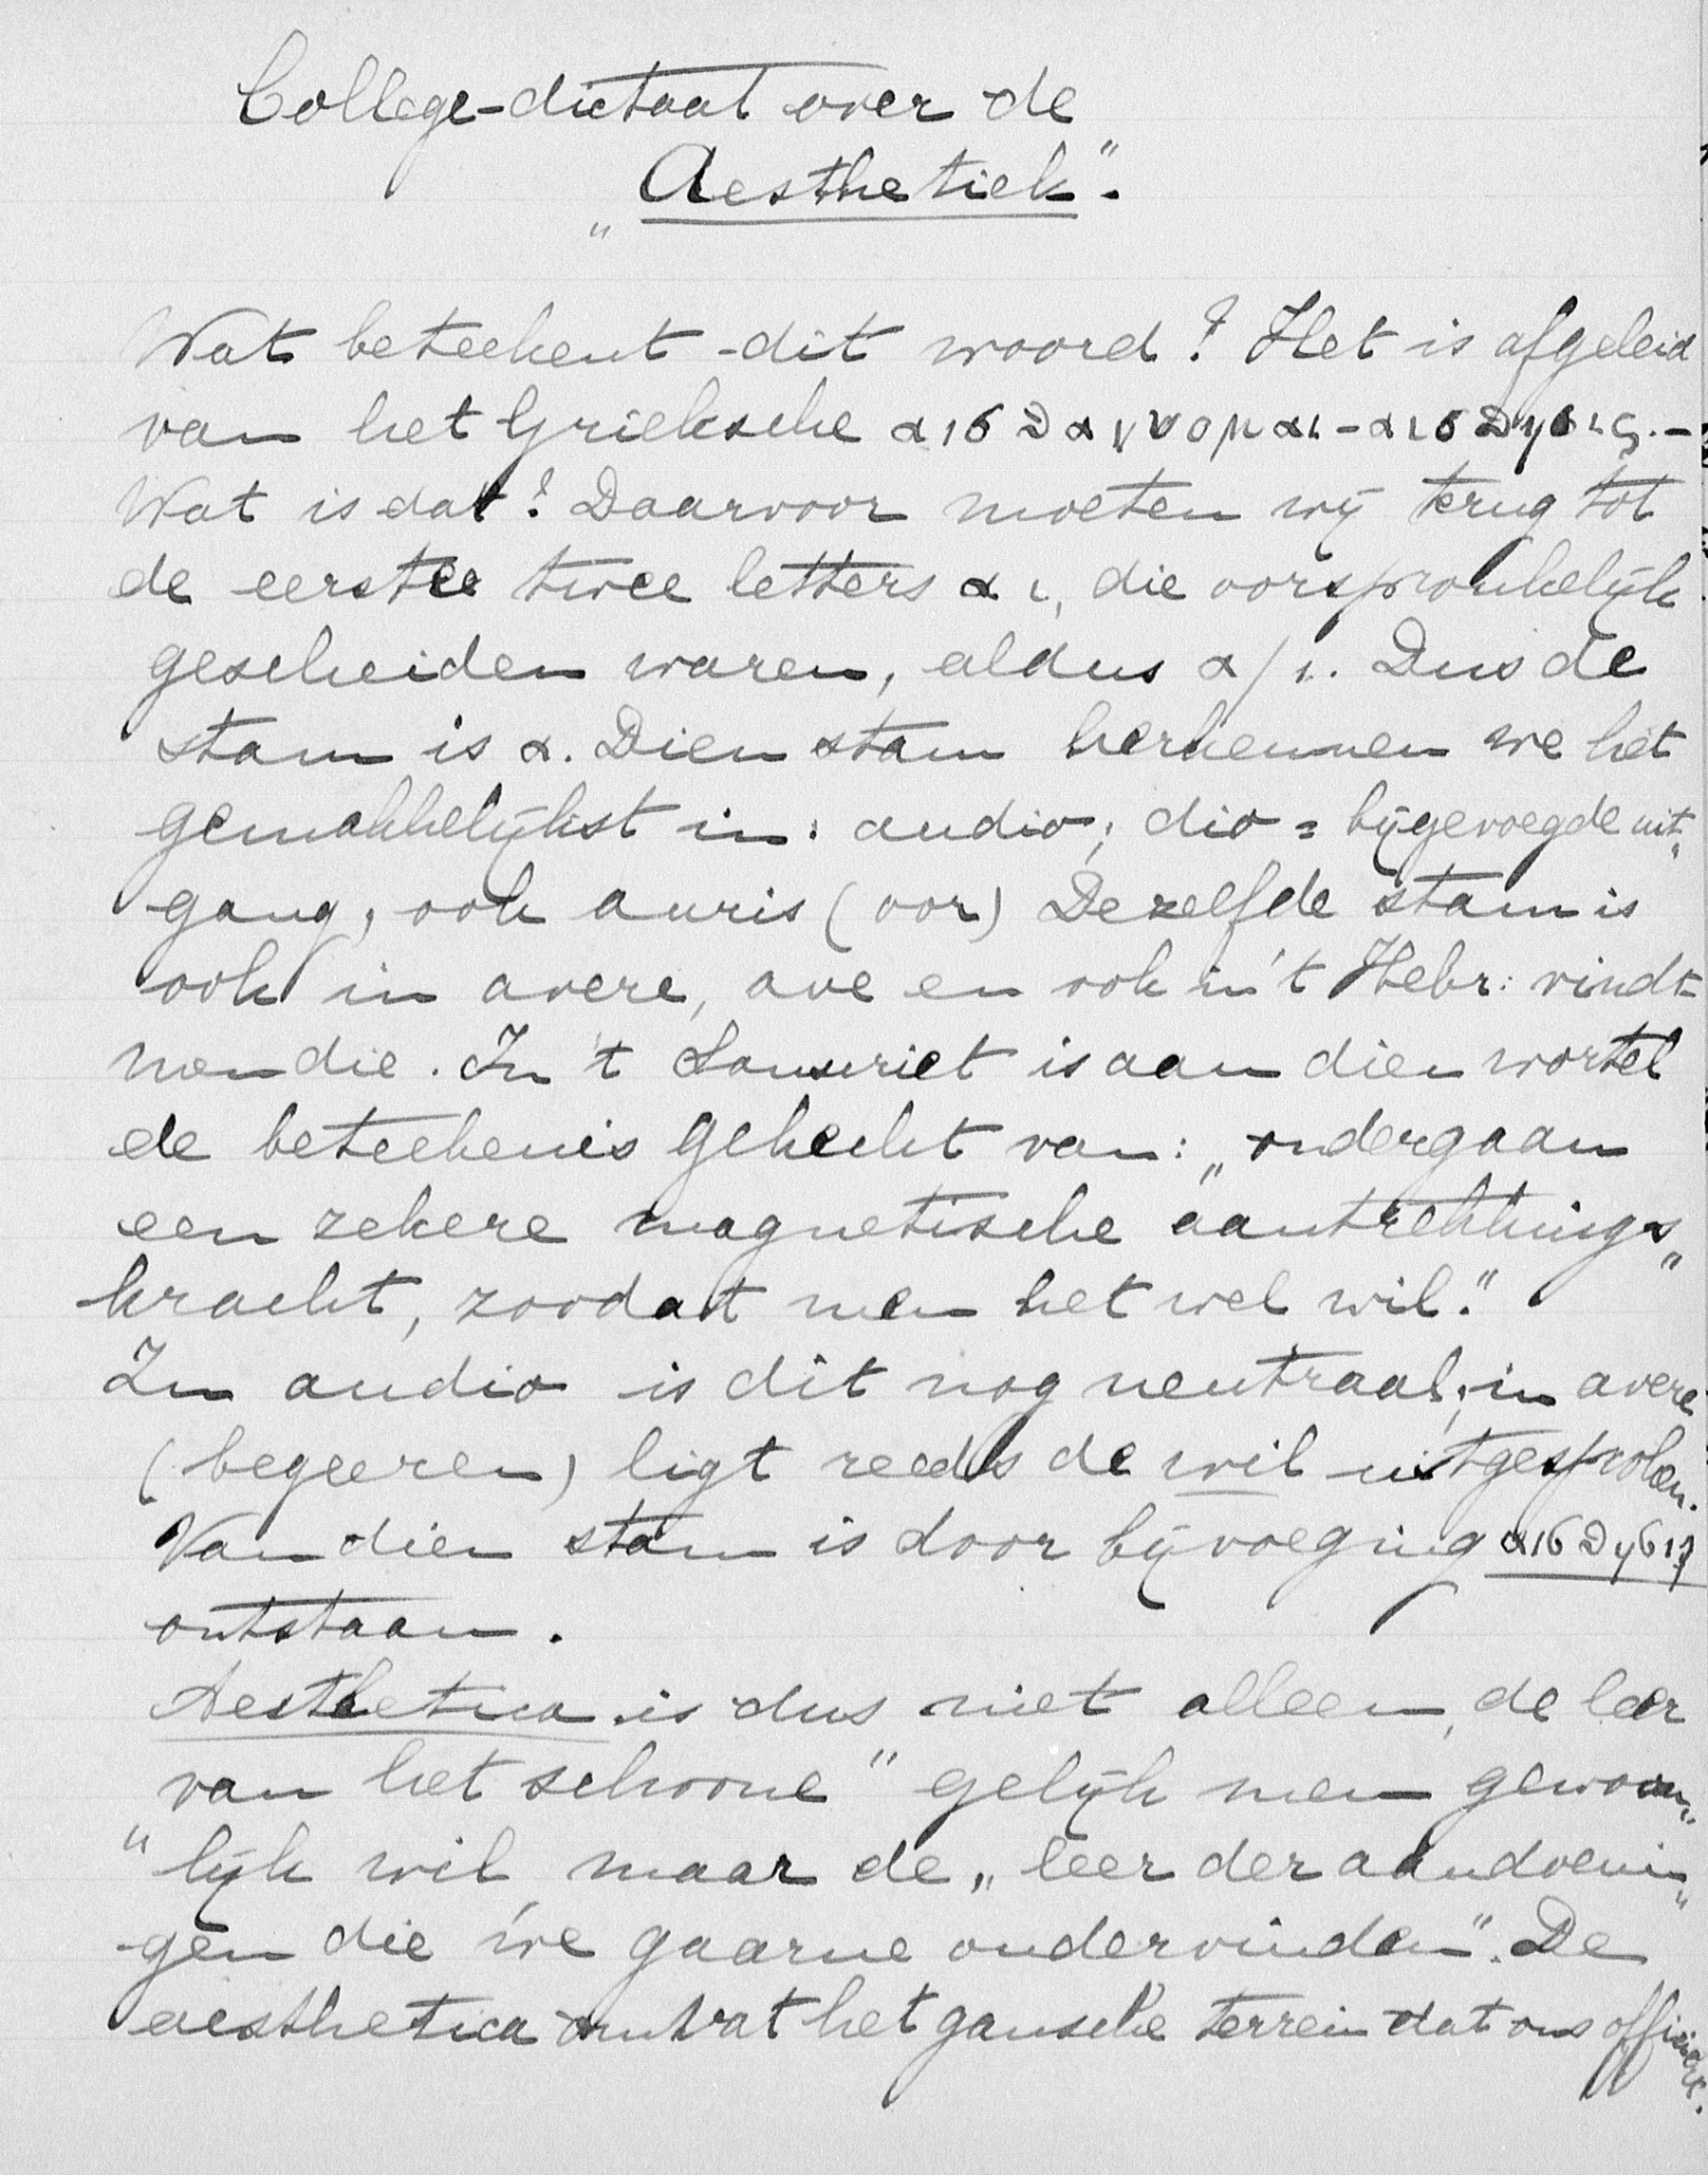 College-dictaat over de
„Aesthetiek".
Wat beteekent dit woord? Het is afgeleid
van het Grieksche αισθανομαι - αισθησις. -
Wat is dat? Daarvoor moeten wij terug tot
de eerste twee letters α ι, die oorspronkelijk
gescheiden waren, aldus α/ι. Dus de
stam is α. Dien stam herkennen we het
gemakkelijkst in: audio; dio = bijgevoegde uit„
gang, ook auris (oor) Dezelfde stam is
ook in avere, ave en ook in 't Hebr: vindt
men die. In 't Sanscriet is aan dien wortel
de beteekenis gehecht van: „ondergaan
een zekere magnetische aantrekkings„
kracht, zoodat men het wel wil."
In audio is dit nog neutraal; in avere
(begeeren) ligt reeds de wil uitgesproken.
Van dien stam is door bijvoeging αισθησις
ontstaan.
Aesthetica is dus niet alleen „de leer
van het schoone" gelijk men gewoon„
"lijk wil, maar de „leer der aandoenin„
gen die we gaarne ondervinden". De
aesthetica omvat het gansche terrein dat ons afficieert.